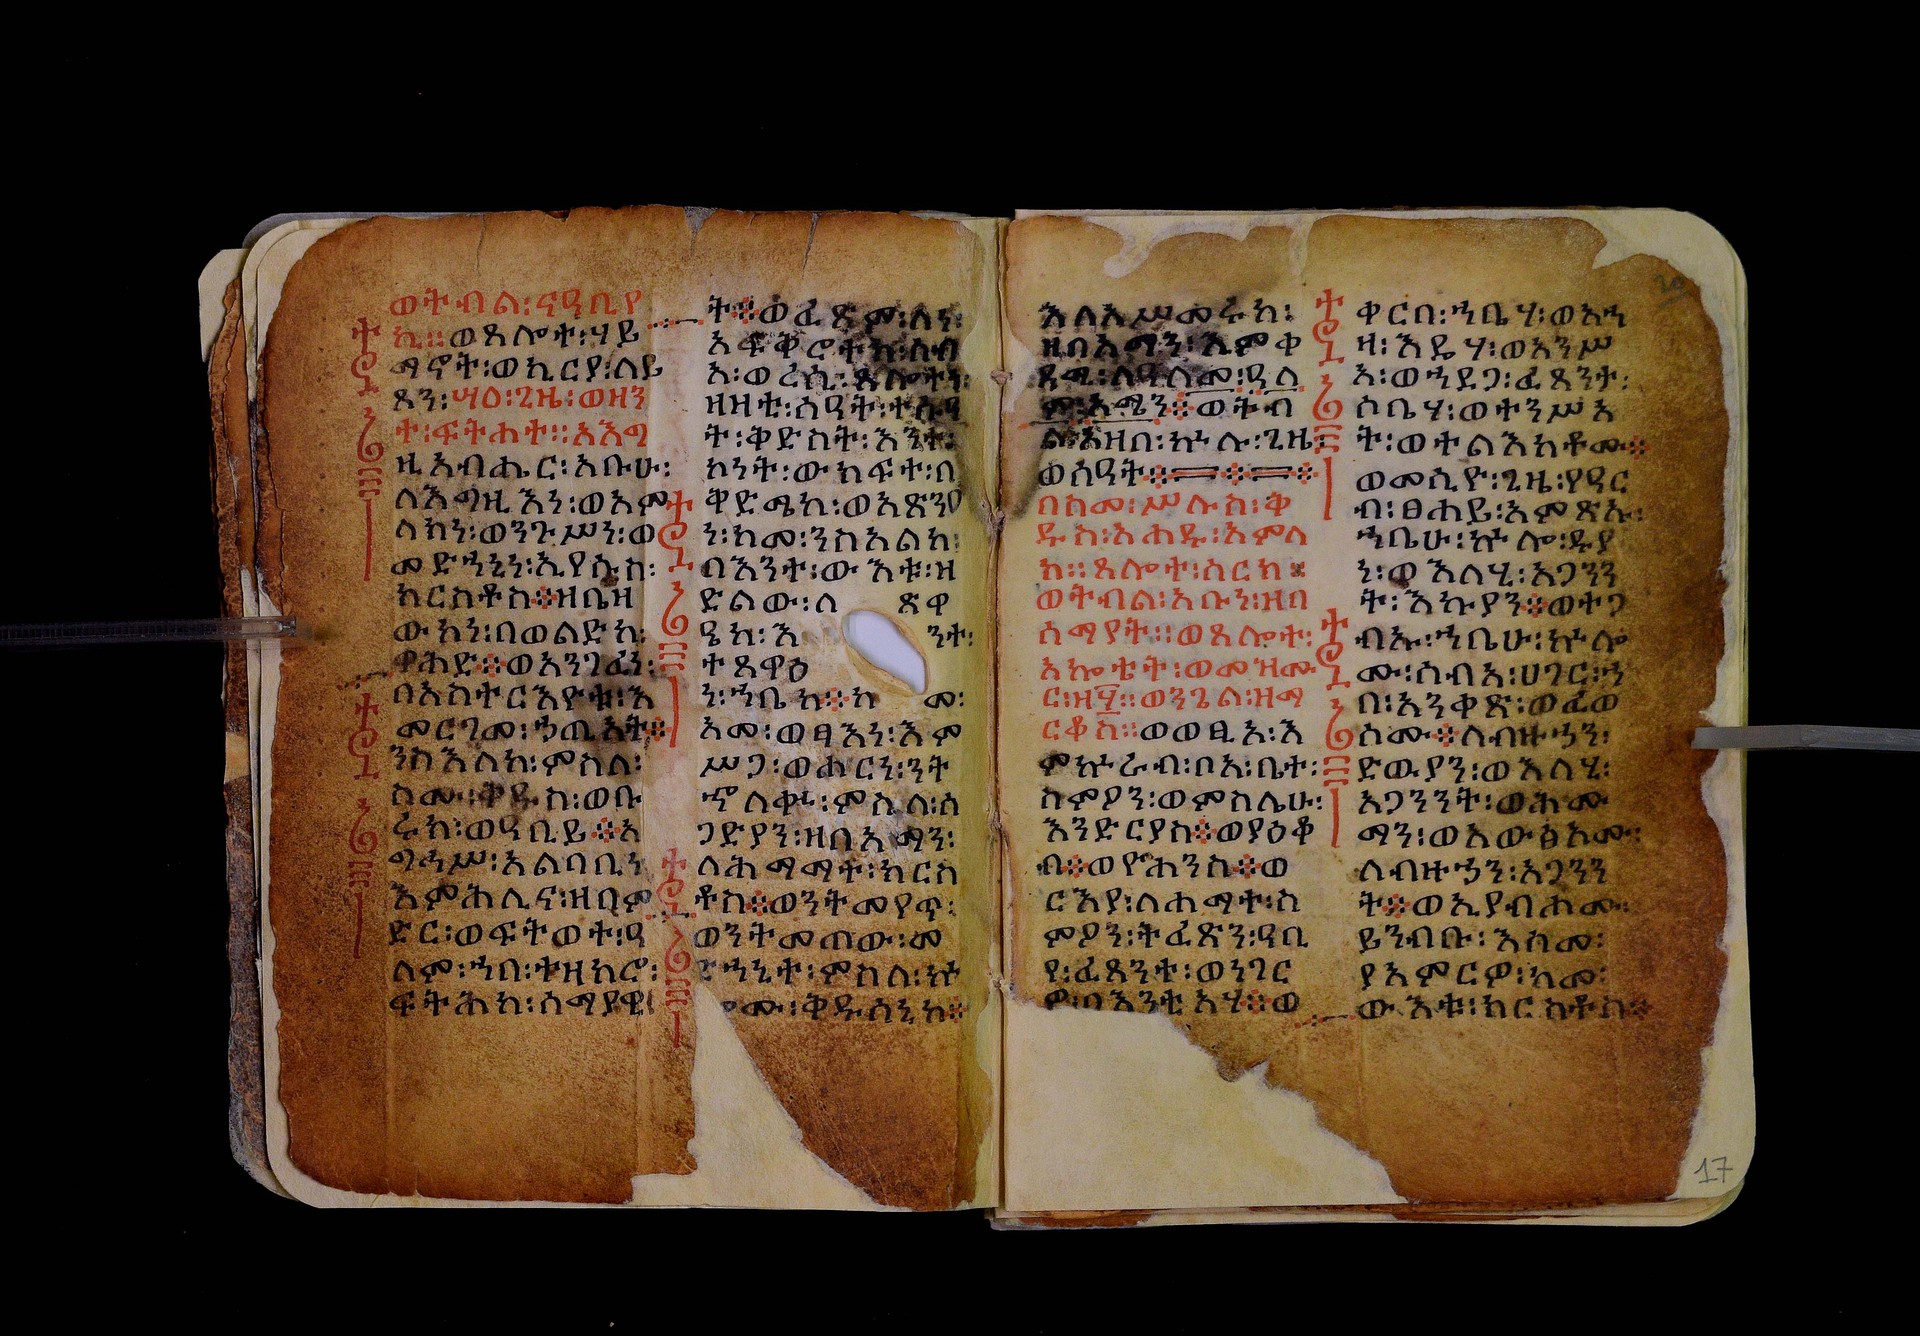 ወትብል፡ናዓቢየ
ኪ።ወጸሎተ፡ሃይ
ማኖት፡ወኪርያ፡ለይ
ጸን፡ሣዕ፡ጊዜ፡ወዘን
ተ፡ፍትሐት።እአግ
ዚአብሔር፡አቡሁ፡
ለእግዚእነ፡ወአም
ላክነ፡ወንጉሥነ፡ወ
መድኀኒነ፡ኢየሱስ፡
ክርስቶስ።ዘቤዘ
ውከነ፡በወልድከ፡
ዋሕድ።ወአንገፈነ፡
በአስተርእዮቱ፡እ
መርገመ፡ኀጢአት።
ንስእለከ፡ምስለ፡
ስሙ፡ቅዱስ፡ወቡ
ሩክ፡ወዓቢይ።አ
ግኅሥ፡አልባቢነ
እምሕሊና፡ዝቡም
ድር፡ወፍትወተ፡ዓ
ለም፡ኀበ፡ተዘክሮ፡
ፍትሕከ፡ሰማያዊ፡
ት።ወፈጽም፡ለነ፡
አፍቅሮተከ፡ሰብ
አ፡ወረሲ፡ጸሎተነ፡
ዘዛቲ፡ሰዓት፡ተሰዓ
ት፡ቅድስት፡እንተ፡
ኮነት፡ውክፍተ፡በ
ቅድሜከ፡ወአጽንዐ
ነ፡ከመ፡ንስአልከ፡
በእንተ፡ውእቱ፡ዘ
ድልው፡ለ ጽዋ
ዔከ፡እ ንተ፡
ተጸዋዕ
ነ፡ኀቤከ።ከ መ፡
እመ፡ወፃእነ፡እም
ሥጋ፡ወሐርነ፡ንት
ኈለቍ፡ምስለ፡ሰ
ጋድያን፡ዘበአማን፡
ለሕማማተ፡ክርስ
ቶስ።ወንትመየጥ፡
ወንትመጠው፡መ
ድኀኒተ፡ምስለ፡ኵ
ሎሙ፡ቅዱሳኒከ።
እለአሥመሩከ፡
ዘበአማን፡እምቀ
ዳሚ፡ለዓለመ፡ዓለ
ም፡አሜን።ወትብ
ል፡እዘበ፡ኵሉ፡ጊዜ፡
ወሰዓት።
በስመ፡ሥሉስ፡ቅ
ዱስ፡አሐዱ፡አምላ
ክ።ጸሎተ፡ሰርክ።
ወትብል፡አቡነ፡ዘበ
ሰማያት።ወጸሎተ፡
አኰቴት፡ወመዝሙ
ር፡ዘ፶።ወንጌል፡ዘማ
ርቆስ።ወወፂአ፡እ
ምኵራብ፡ቦአ፡ቤተ፡
ስምዖን፡ወምስሌሁ፡
እንድርያስ።ወያዕቆ
ብ።ወዮሐንስ።ወ
ርእያ፡ለሐማተ፡ስ
ምዖን፡ትፈጽን፡ዓቢ
የ፡ፈጸንተ፡ወነገር
ዎ፡በእንቲአሃ።ወ
ቀርበ፡ኀቤሃ፡ወአኀ
ዛ፡እዴሃ፡ወአንሥ
አ፡ወኀደጋ፡ፈጸንታ፡
ሶቤሃ፡ወተንሥአ
ት፡ወተልእከቶሙ።
ወመሲዮ፡ጊዜ፡የዓር
ብ፡ፀሐይ፡አምጽኡ፡
ኀቤሁ፡ኵሎ፡ዱያ
ነ፡ወእለሂ፡አጋንን
ት፡እኩያን።ወተጋ
ብኡ፡ኀቤሁ፡ኵሎ
ሙ፡ሰብአ፡ሀገር፡ኀ
በ፡አንቀጽ፡ወፈወ
ሶሙ።ለብዙኃን፡
ድዉያን፡ወእለሂ፡
አጋንንት፡ወሕሙ
ማን፡ወአውፅአሙ፡
ለብዙኃን፡አጋንን
ት።ወኢያብሐሙ፡
ይንብቡ፡እስመ፡
ያአምርዎ፡ከመ፡
ውእቱ፡ክርስቶስ።
17